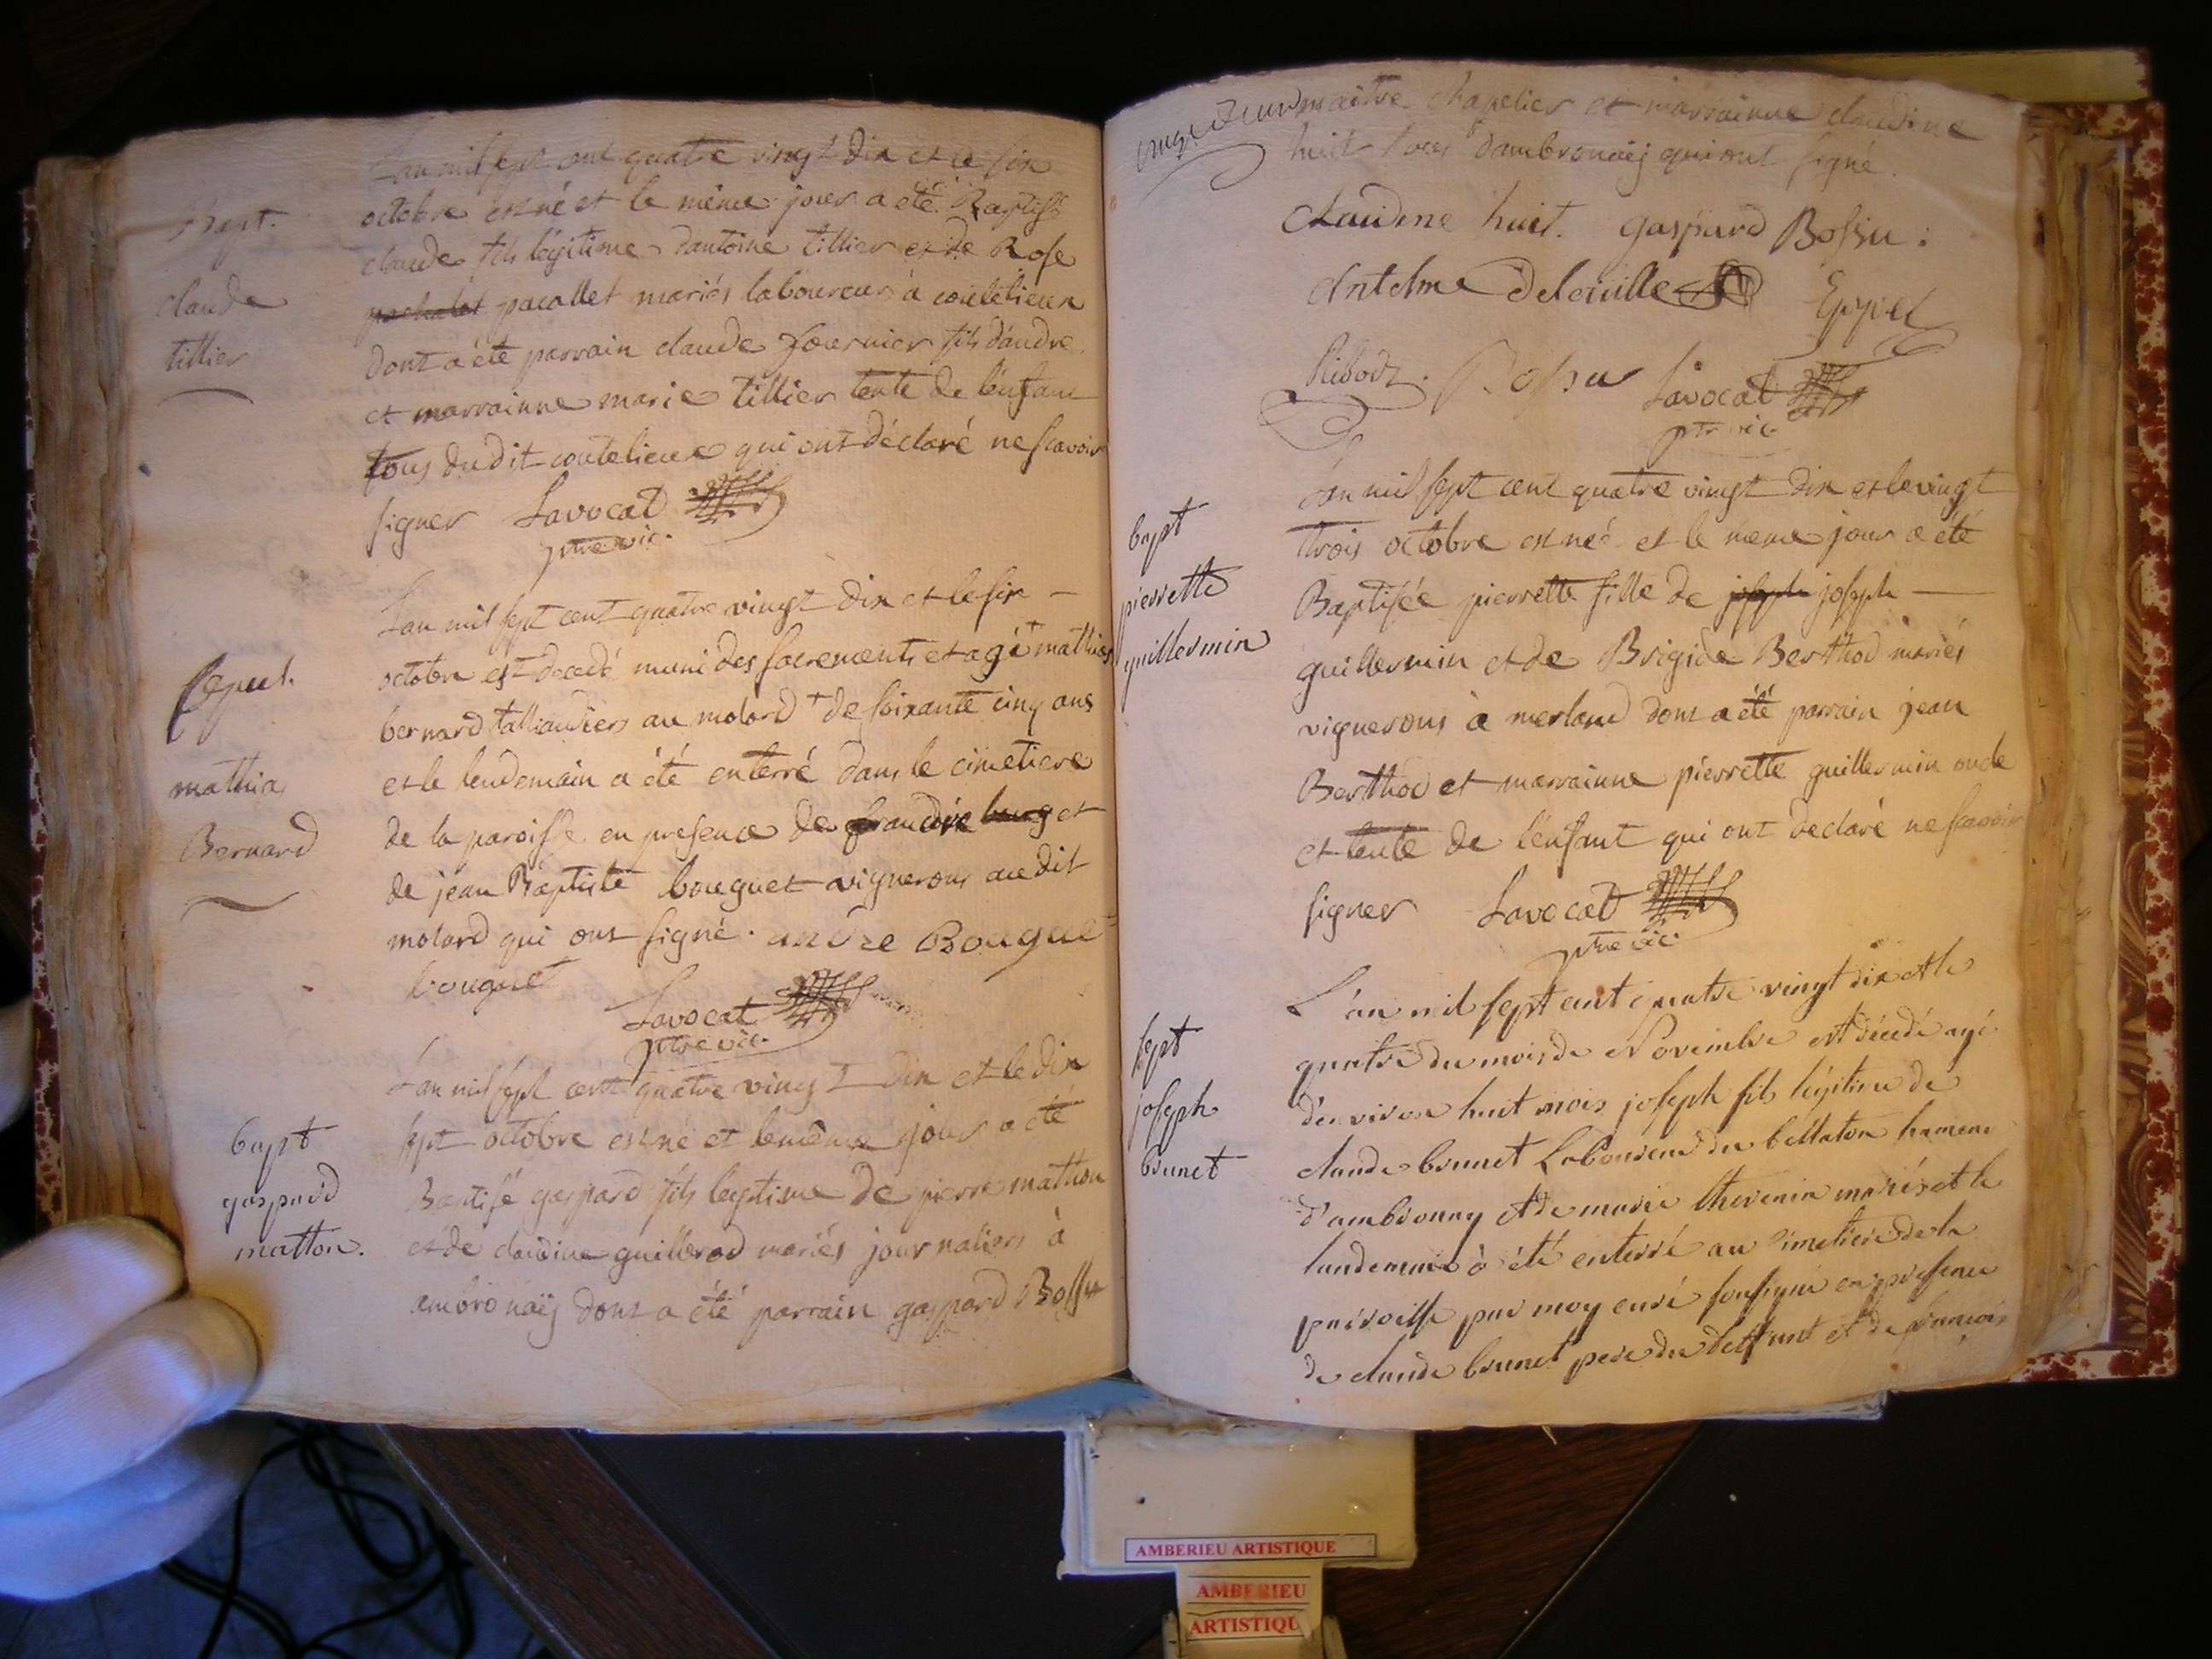 L'an mil sept cent quatre vingt dix et le six
Bapt.
octobre est né et le même jour a été Baptisé
claude fils légitime d'antoine tillier et de Rose
claude
pacallet mariés laboureurs à coutelieux
tillier
dont a été parrain claude fournier fils d'andre
et marrainne marie tillier tente de l'enfant
tous dudit coutelieux qui ont déclaré ne scavoir
signer Lavocat
ptre vic.
L'an mil sept cent quatre vingt dix et le six
octobre est decedé muni des sacrements et agé + mathias
Sepul.
bernard tallandier au molard + de soixante cinq ans
mathias
et le lendemain a été enterré dans le cimetiere
Bernard
de la paroisse en presence de andré et
de jean Baptiste bouguet vignerons audit
molard qui ont signé. andre Bouguet
bouguet
Lavocat
ptre vic.
L'an mil sept cent quatre vingt dix et le dix
bapt
sept octobre est né et le même jour a été
gaspard
Baptisé gaspard fils legitime de pierre mathon
matton.
et de claudine guillerod mariés journaliers à
ambronaÿ dont a été parrain gaspard Bossu
vingt deux
maitre chapelier et marrainne claudine
huit tous d'ambronaÿ qui ont signé.
claudine huit. gaspard Bossu.
Antelme Eppel
Ribod. Bossu Lavocat
ptre vic.
L'an mil sept cent quatre vingt dix et le vingt
bapt
trois octobre est né et le meme jour a été
pierrette
Baptisée pierrette fille de joseph joseph
guillermin
guillermin et de Brigide Berthod mariés
vignerons à merland dont a été parrain jean
Berthod et marrainne pierrette guillermin oncle
et tente de l'enfant qui ont declaré ne scavoir
signer Lavocat
ptre vic.
L'an mil sept cent quatre vingt dix et le
sept
quatre du mois de Novembre est décedé agé
joseph
d'environ huit mois joseph fils légitime de
brunet
claude brunet Laboureur du bellaton hameau
d'ambronay et de marie thevenin mariés et le
landemain à été enterré au cimetiere de la
parroisse par moy curé soussigné en presence
de claude brunet pere du deffunt et de françois
AMBERIEU ARTISTIQUE
AMBERIEU
ARTISTIQU